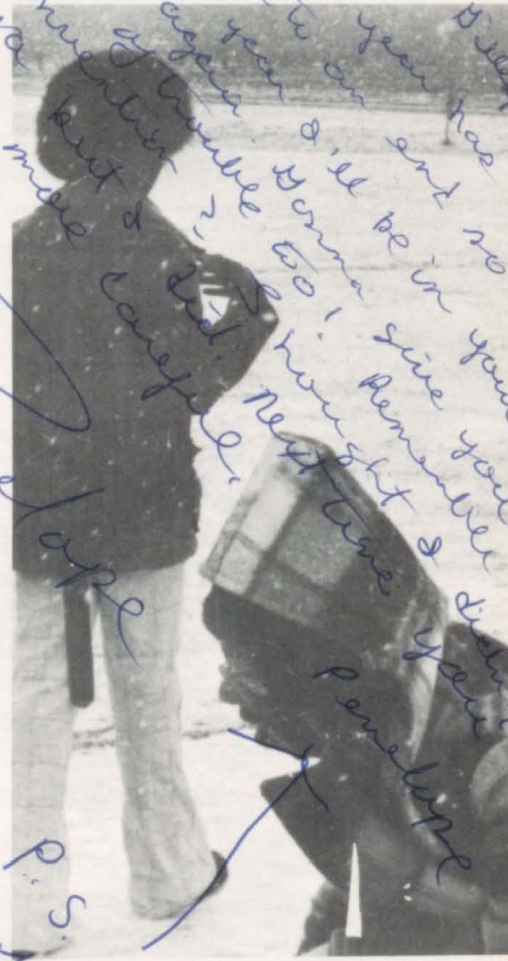 year has
to an end so
year I'll be in you
again. Gonna give you
of trouble too! Remember
nvention? Thought I didn
but I did. Next time you
more careful.
Penelope
elope
P.S.